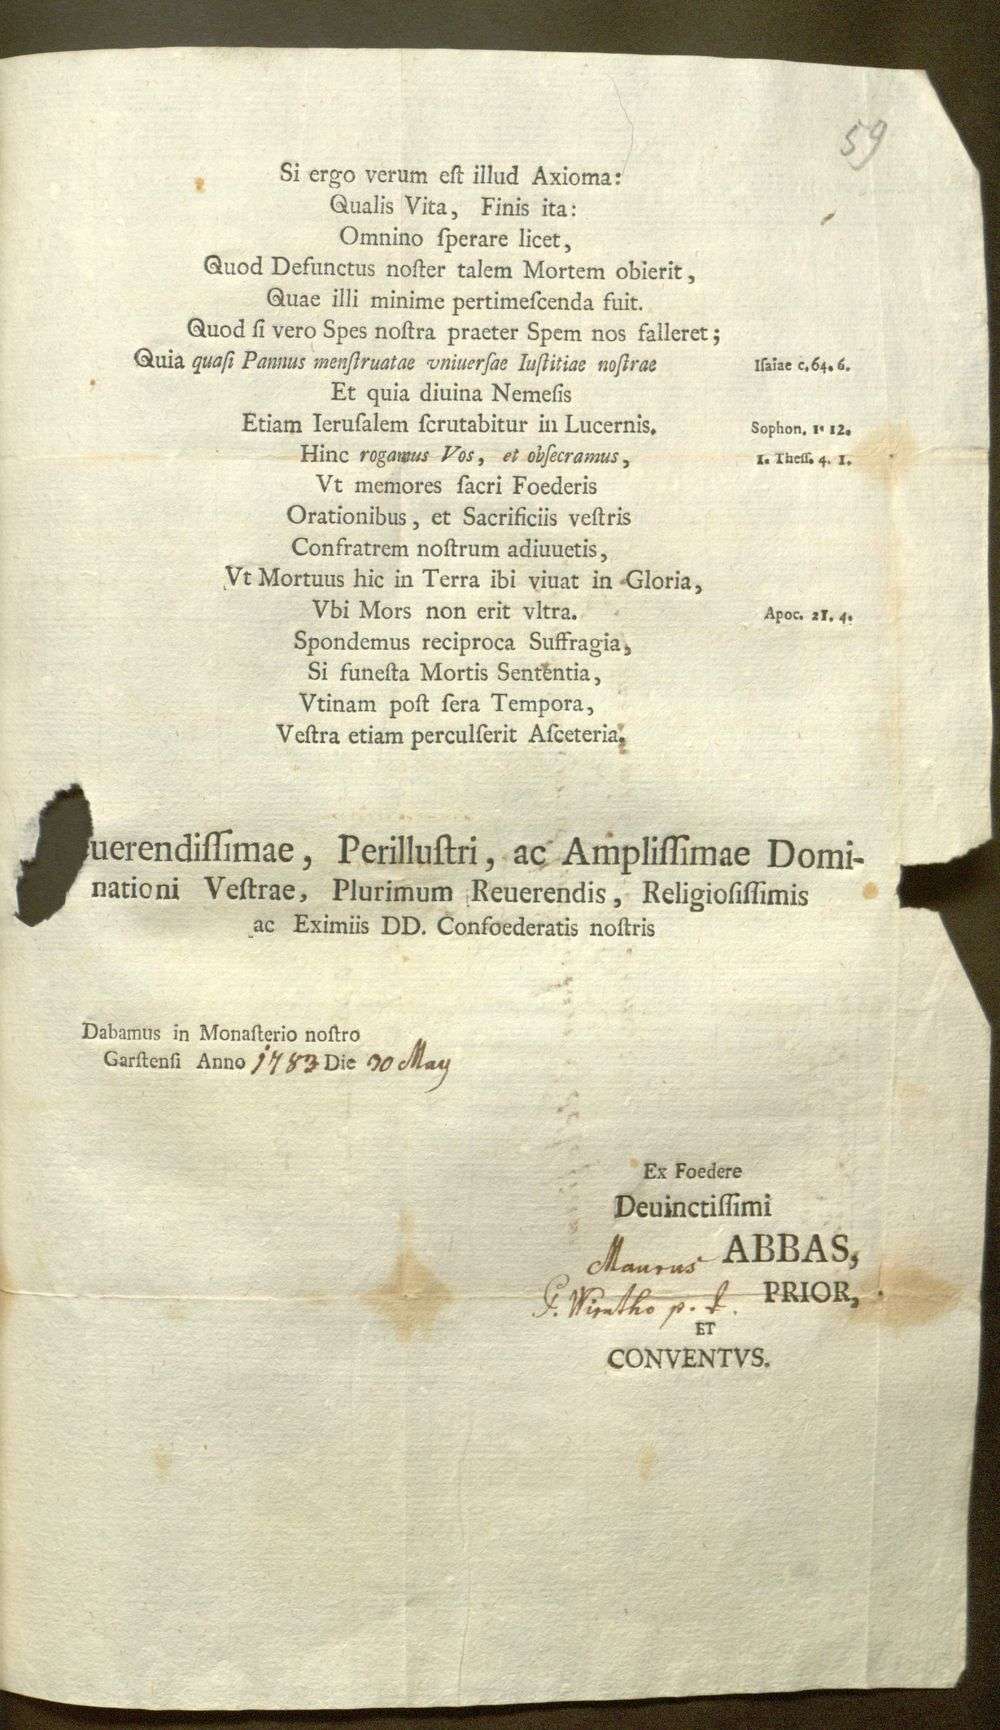 59
Si ergo verum eſt illud Axioma:
Qualis Vita, Finis ita:
Omnino ſperare licet,
Quod Defunctus noſter talem Mortem obierit,
Quae illi minime pertimeſcenda fuit.
Quod ſi vero Spes noſtra praeter Spem nos falleret;
Quia quaſi Pannus menſtruatae vniuerſae Iuſtitiae noſtrae Iſaiae c. 64. 6.
Et quia diuina Nemeſis
Etiam Ieruſalem ſcrutabitur in Lucernis. Sophon. 1. 12.
Hinc rogamus Vos, et obſecramus, 1. Theſſ. 4. 1.
Vt memores ſacri Foederis
Orationibus, et Sacrificiis veſtris
Confratrem noſtrum adiuuetis,
Vt Mortuus hic in Terra ibi viuat in Gloria,
Vbi Mors non erit vltra. Apoc. 21. 4.
Spondemus reciproca Suffragia,
Si funeſta Mortis Sententia,
Vtinam poſt ſera Tempora,
Veſtra etiam perculſerit Aſceteria.
uerendiſſimae, Perilluſtri, ac Ampliſſimae Domi-
nationi Veſtrae, Plurimum Reuerendis, Religioſiſſimis
ac Eximiis DD. Confoederatis noſtris
Dabamus in Monaſterio noſtro
Garſtenſi Anno 1783 Die 30 May
Ex Foedere
Deuinctiſſimi
Maurus ABBAS,
P. Wirntho p. t. PRIOR,
ET
CONVENTVS.